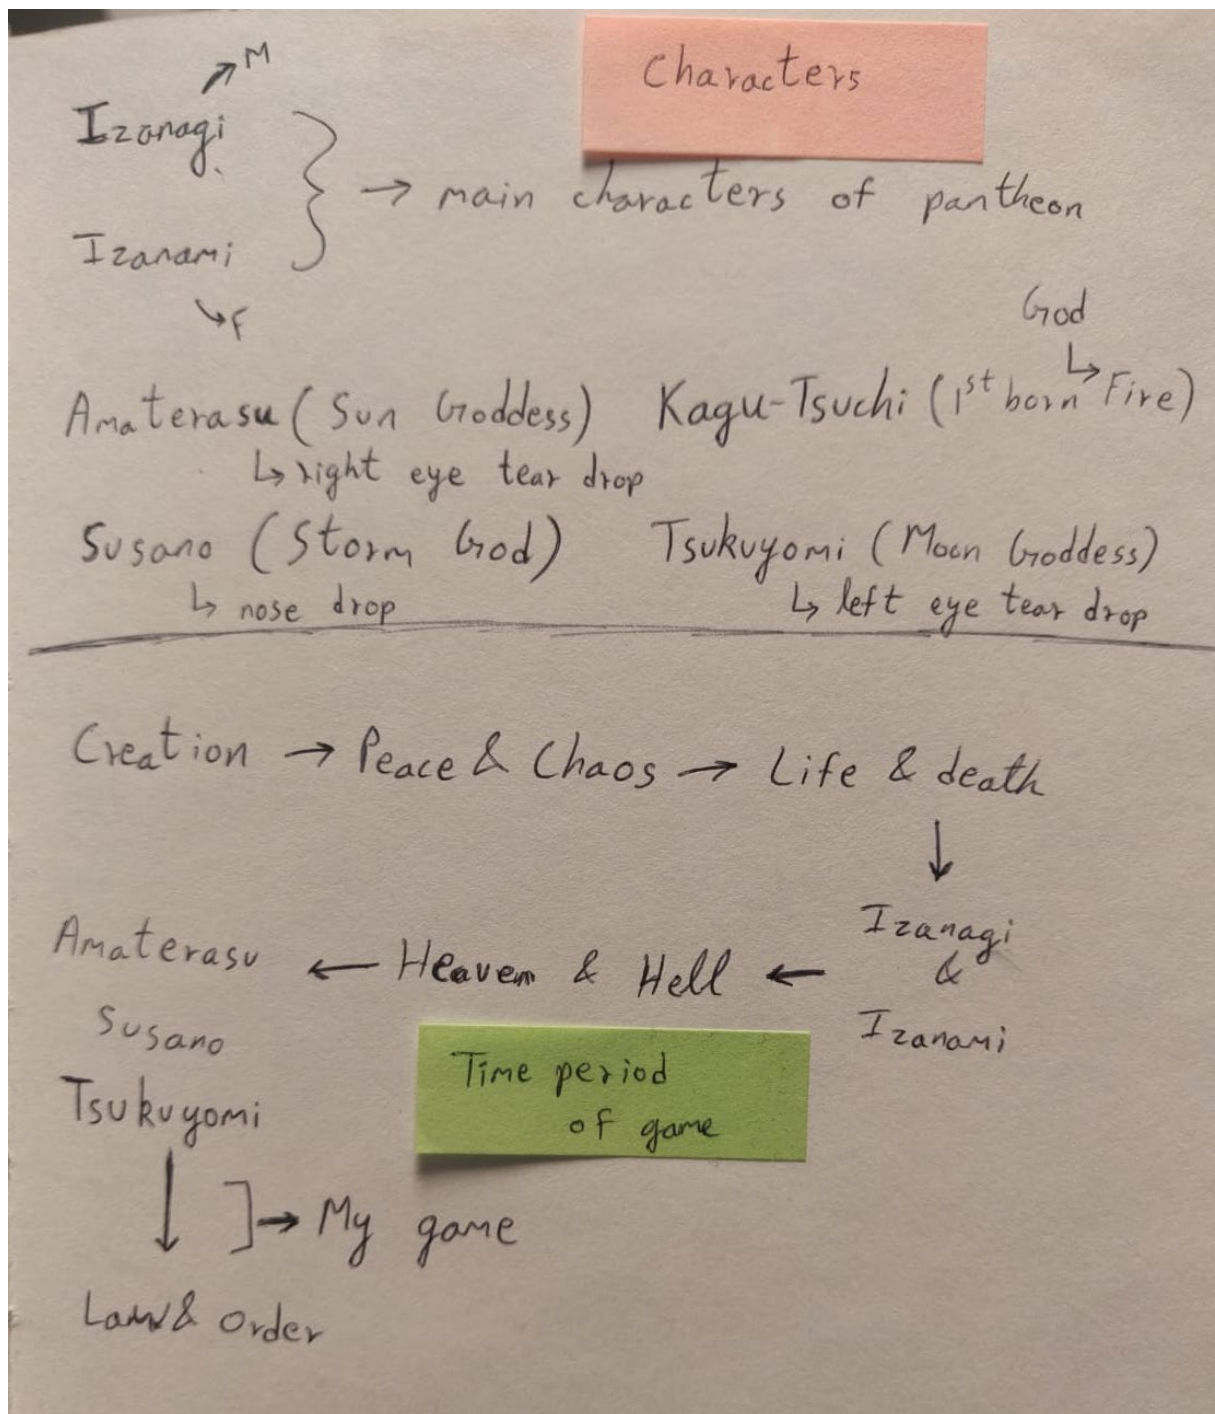 Characters
M
Izanagi
→ main characters of pantheon
Izanami
F
God
Amaterasu (Sun Goddess) Kagu-Tsuchi (1st born Fire)
↳ right eye tear drop
Susano (Storm God) Tsukuyomi (Moon Goddess)
↳ nose drop ↳ left eye tear drop
Creation → Peace & Chaos → Life & death
↓
Izanagi
&
Izanami
← Heaven & Hell
← Amaterasu
Susano
Tsukuyomi
Time period
of game
↓ ] → My game
Law & Order